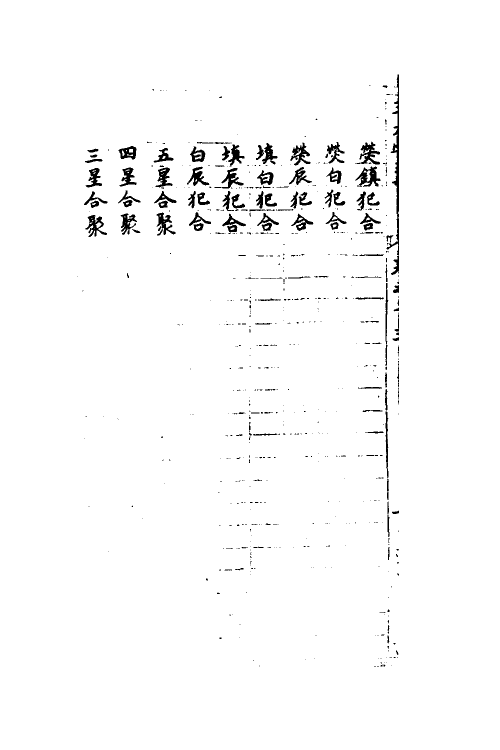 熒鎮犯合
熒白犯合
熒辰犯合
填白犯合
填辰犯合
白辰犯合
五星合聚
四星合聚
三星合聚